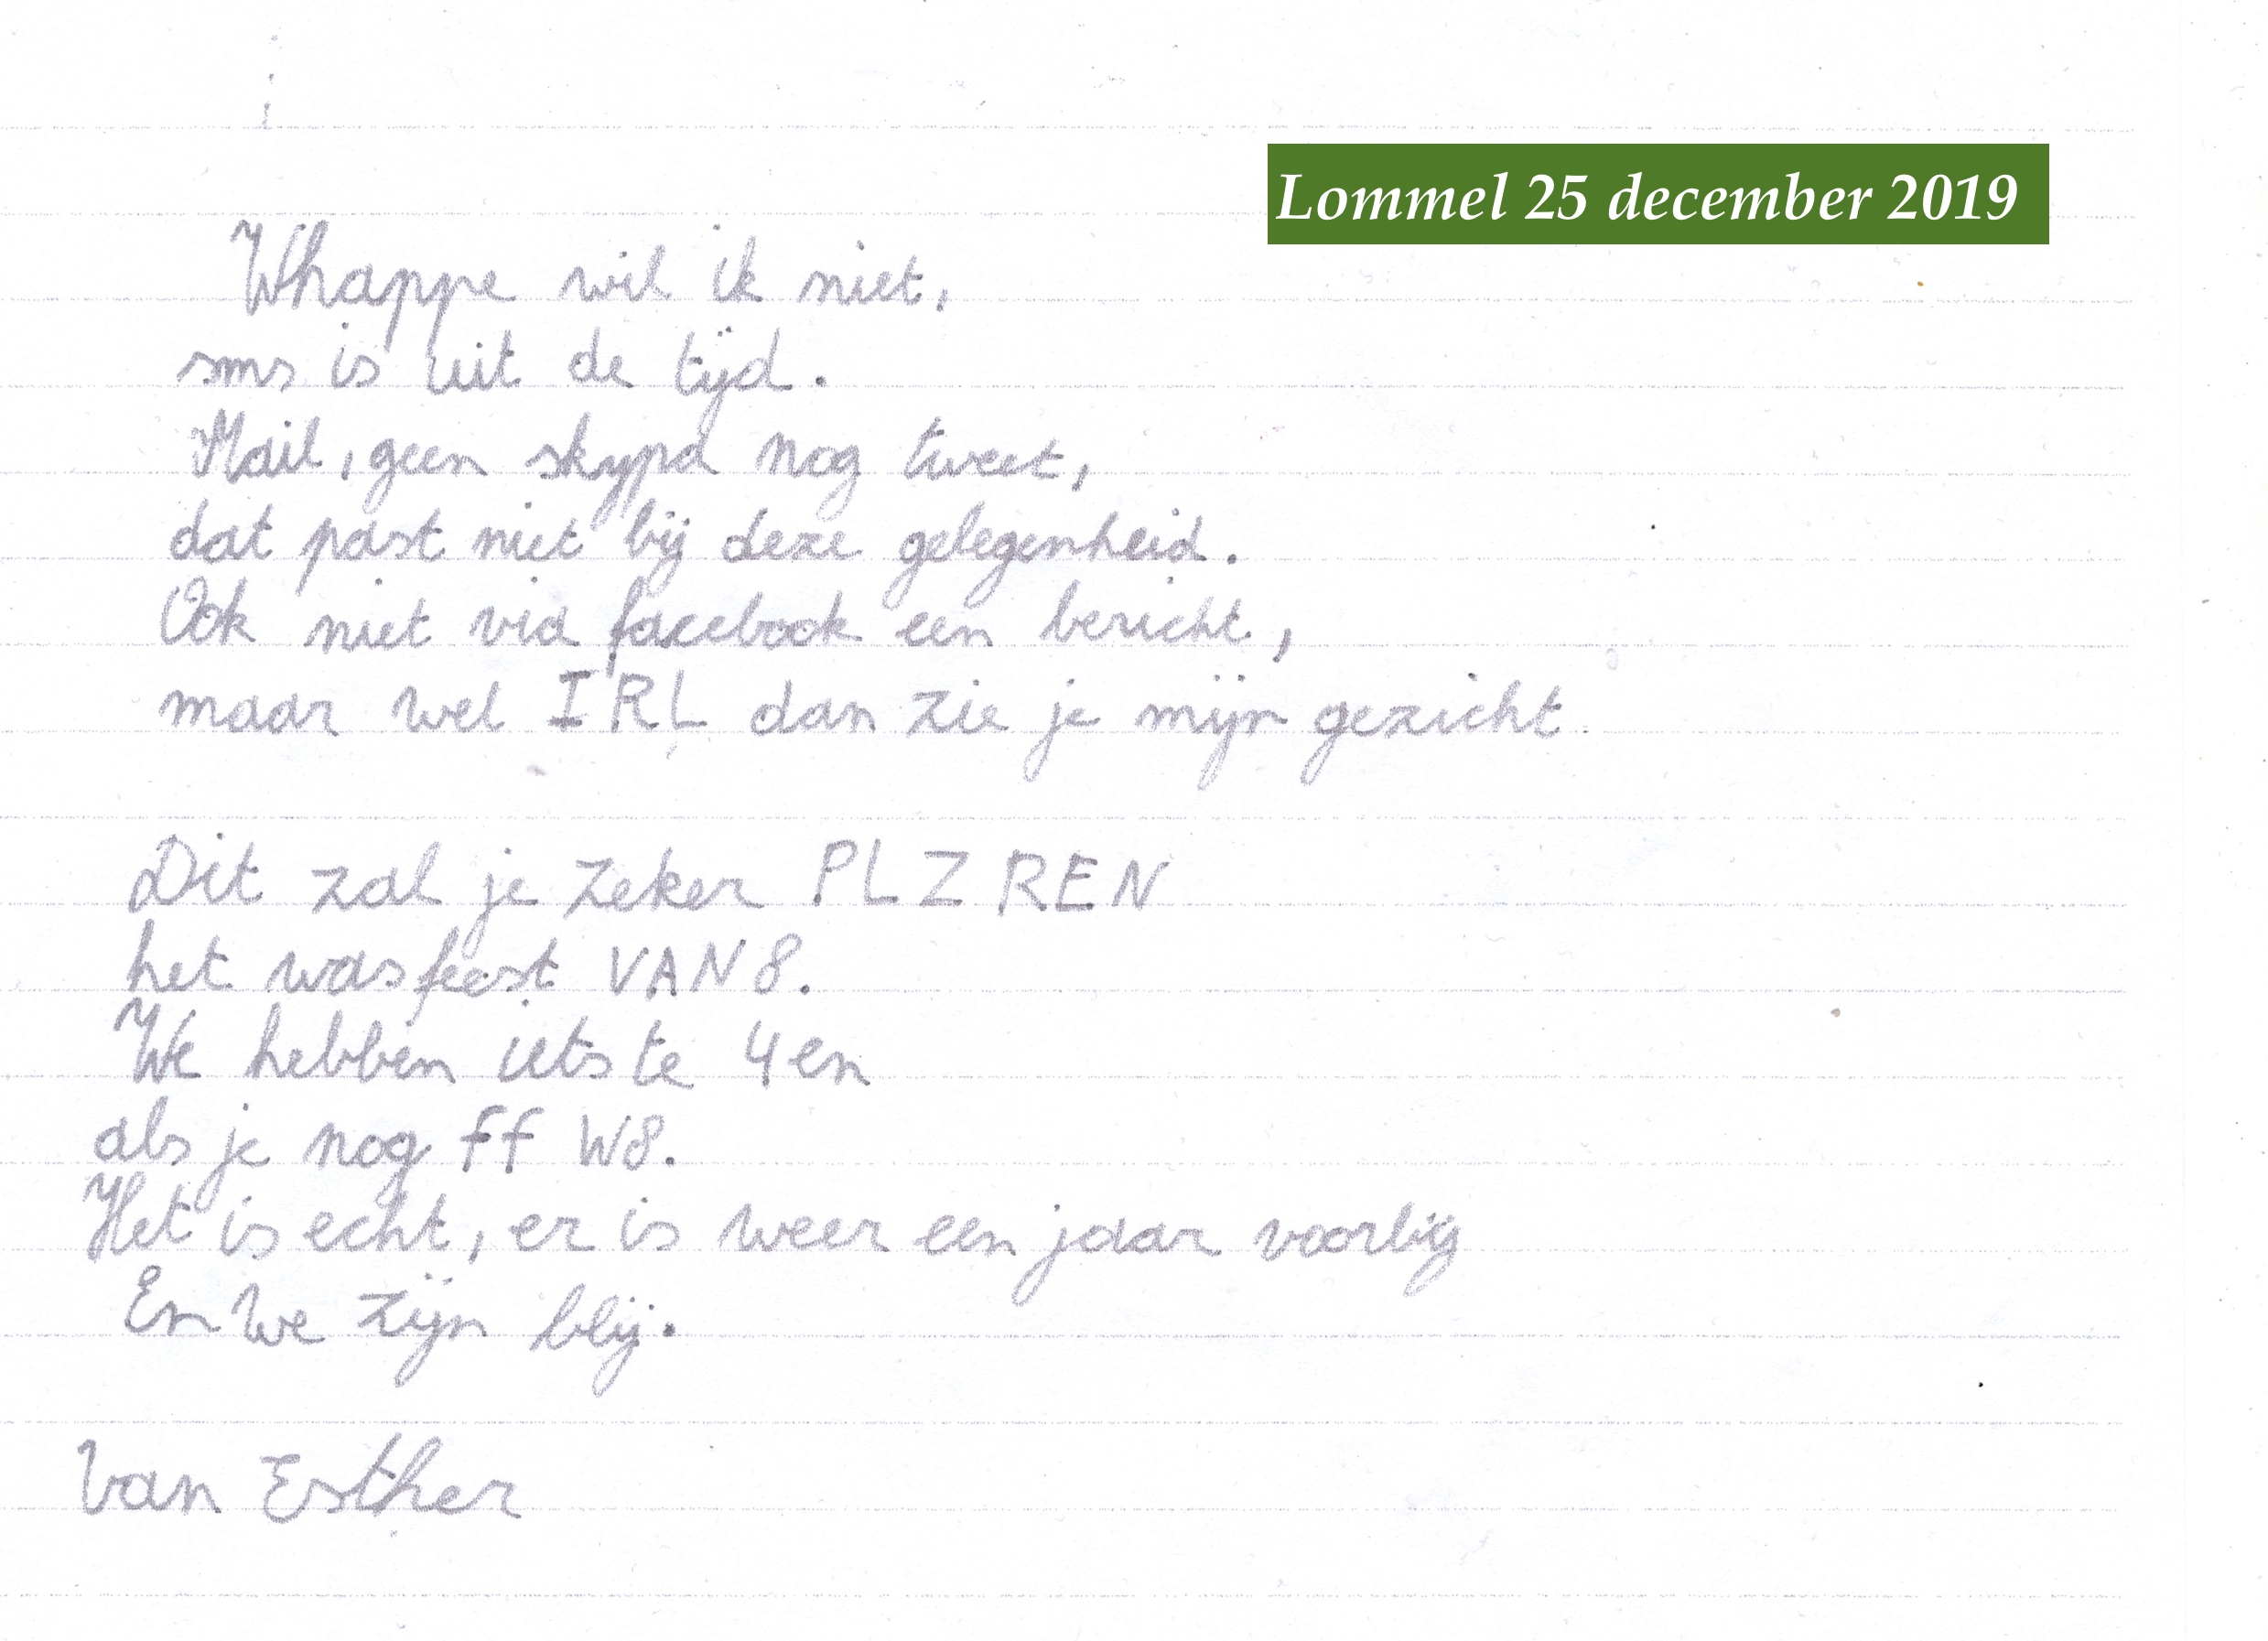 Lommel 25 december 2019
Whappe wil ik niet,
sms is uit de tijd.
Mail, geen skypa nog tweet,
dat past niet bij deze gelegenheid.
Ook niet via facebook een bericht,
maar wel IRL dan zie je mijn gezicht
Dit zal je zeker PLZREN
het was feest VAN8.
We hebben iets te 4en
als je nog ff W8.
Het is echt, er is weer een jaar voorbij
En we zijn blij.
Van Esther